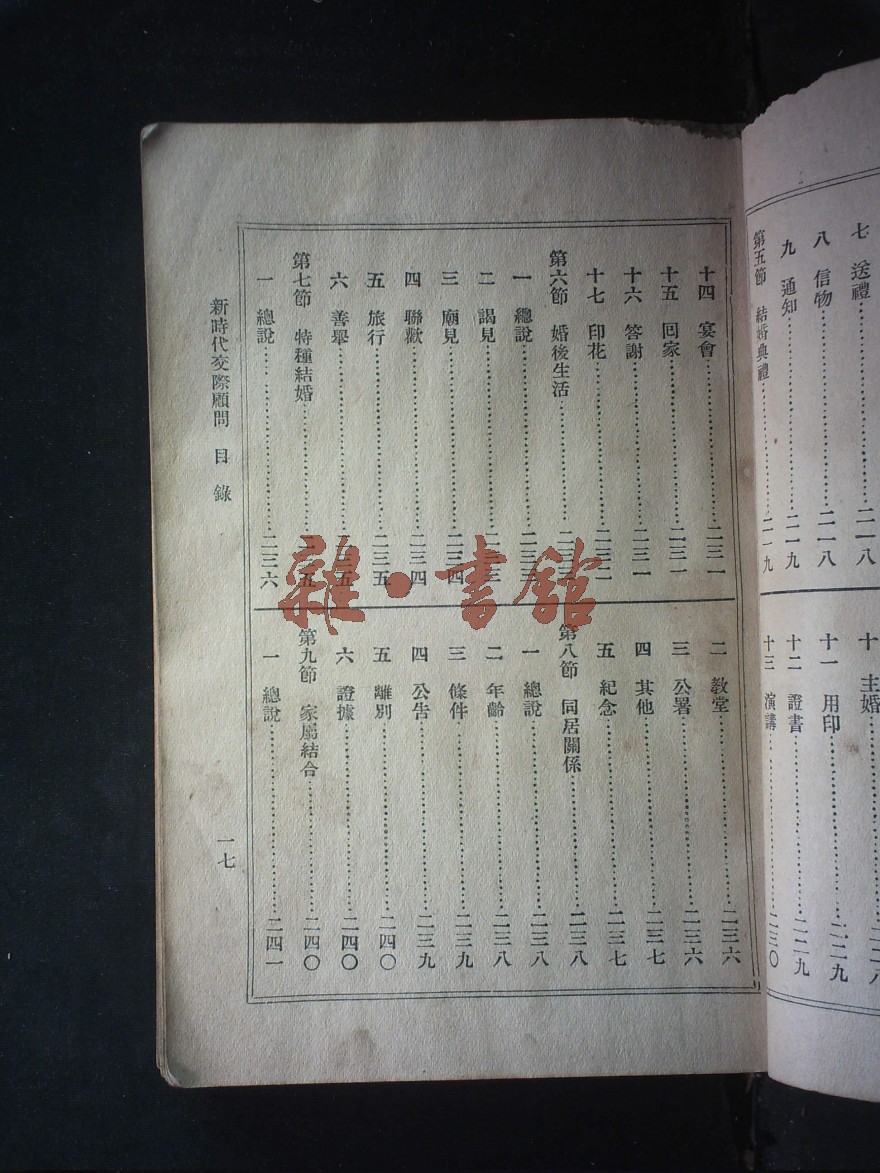 七 送禮……二一八
八 信物……二一八
九 通知……二一九
第五節 結婚典禮……二一九
十 主婚……二二八
十一 用印……二二九
十二 證書……二二九
十三 演講……二三〇
十四 宴會……二三一
十五 回家……二三一
十六 答謝……二三一
十七 印花……
第六節 婚後生活……
一 總說……
二 謁見……
三 廟見……二三四
四 聯歡……二三四
五 旅行……二三五
六 善舉……二三五
第七節 特種結婚……二三五
一 總說……二三六
二 教堂……二三六
三 公署……二三六
四 其他……二三七
五 紀念……二三七
第八節 同居關係……二三八
一 總說……二三八
二 年齡……二三八
三 條件……二三九
四 公告……二三九
五 離別……二四〇
六 證據……二四〇
第九節 家屬結合……二四〇
一 總說……二四一
新時代交際顧問 目錄 一七
雜·書館